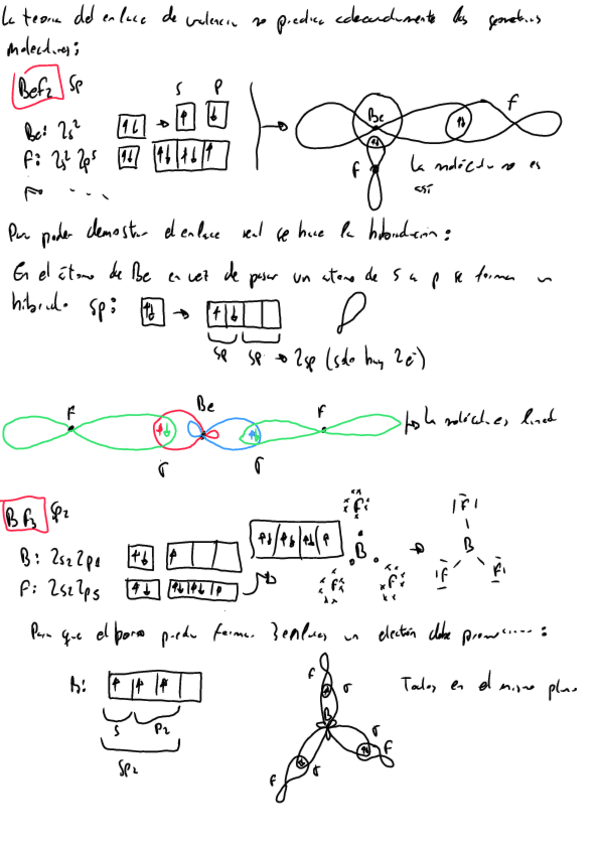 La teoria del enlace de valencia no predice adecuadamente las geometrias
moleculares:
BeF2 sp
s p
Be: 2s²
F: 2s² 2p⁵
F ....
Be
F
F
La molécula no es
así
Para poder demostrar el enlace real se hace la hibridación:
En el átomo de Be en vez de pasar un atomo de s a p se forma un
hibrido sp:
sp sp → 2sp (solo hay 2e⁻)
F Be F → La molécula es lineal
σ σ
BF3 sp2
B: 2s2 2p1
F: 2s2 2p5
F
B
F F
|F|
B
|F F|
Para que el boro pueda formar 3 enlaces un electrón debe
B:
s p2
sp2
F
σ
B
σ
F
F σ
Todos en el mismo plano